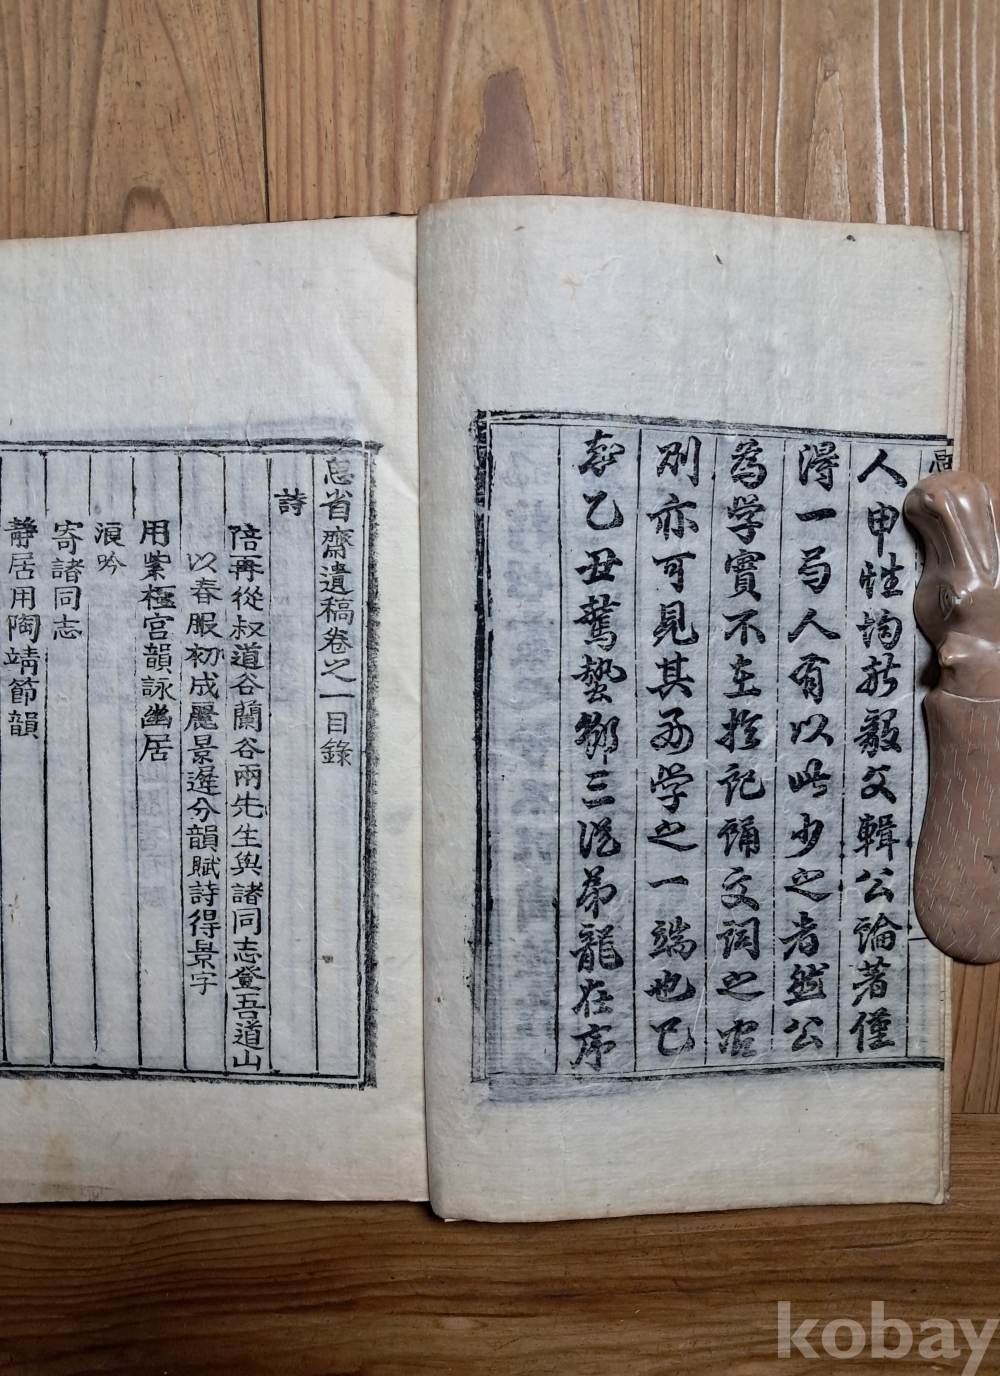 人申性均於毅父輯公論著僅
得一焉人有以此少之者然公
為學實不在於記誦文詞之
則亦可見其為学之一端也已
乙丑驚蟄鄉三從弟龍在序
省齋遺稿卷之一目錄
詩
陪再從叔道谷蘭谷兩先生與諸同志登吾道山
以春服初成麗景遲分韻賦詩得景字
用紫極宮韻詠幽居
浪吟
寄諸同志
靜居用陶靖節韻
kobay